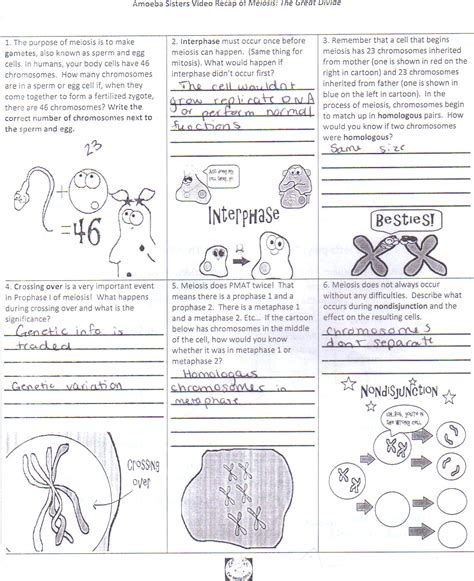 Amoeba Sisters Video Recap of Meiosis: The Great Divide
1. The purpose of meiosis is to make
gametes, also known as sperm and egg
cells. In humans, your body cells have 46
chromosomes. How many chromosomes
are in a sperm or egg cell if, when they
come together to form a fertilized zygote,
there are 46 chromosomes? Write the
correct number of chromosomes next to
the sperm and egg.
23
+
=46
2. Interphase must occur once before
meiosis can happen. (Same thing for
mitosis). What would happen if
interphase didn't occur first?
The cell wouldnt
grow replicate DNA
or perform normal
functions
INTERPHASE
3. Remember that a cell that begins
meiosis has 23 chromosomes inherited
from mother (one is shown in red on the
right in cartoon) and 23 chromosomes
inherited from father (one is shown in
blue on the left in cartoon). In the
process of meiosis, chromosomes begin
to match up in homologous pairs. How
would you know if two chromosomes
were homologous?
Same size
BESTIES!
4. Crossing over is a very important event
in Prophase I of meiosis! What happens
during crossing over and what is the
significance?
Genetic info is
traded
Genetic variation
CROSSING
OVER
5. Meiosis does PMAT twice! That
means there is a prophase 1 and a
prophase 2. There is a metaphase 1
and a metaphase 2. Etc... If the cartoon
below has chromosomes in the middle
of the cell, how would you know
whether it was in metaphase 1 or
metaphase 2?
Homologous
chromosomes in
metaphase
6. Meiosis does not always occur
without any difficulties. Describe what
occurs during nondisjunction and the
effect on the resulting cells.
Chromosomes
dont separate
NONDISJUNCTION